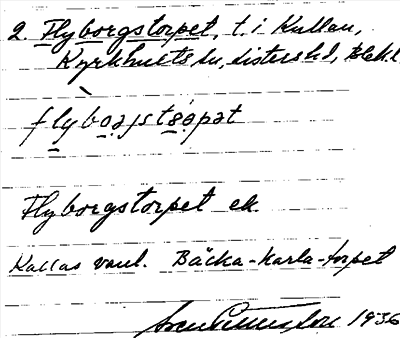 2. Flyborgstorpet, t. i Kullan,
Kyrkhults sn, Listers hd, Blek. l
flyborjstorpət
Flyborgstorpet ek.
Kallas vanl. Bäcka-Karla-torpet
1936